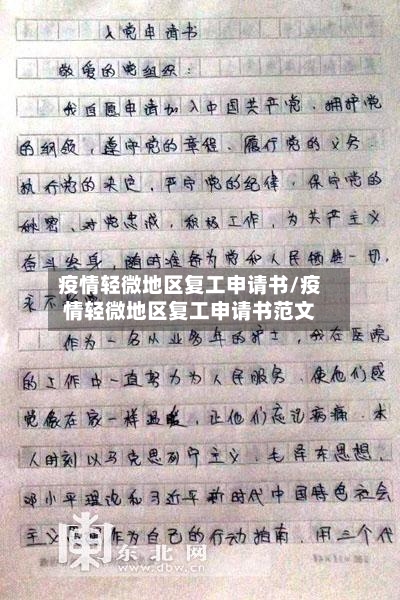 入党申请书
敬爱的党组织:
我自愿申请加入中国共产党,拥护党
的纲领,遵守党的章程,履行党的义务,
执行党的决定,严守党的纪律,保守党的
秘密,对党忠诚,积极工作,为共产主义
奋斗终身,随时准备为党和人民牺牲一切,
永不
疫情轻微地区复工申请书/疫
情轻微地区复工申请书范文
作为一名从业多年的护士,我在医院
的工作中一直努力为人民服务,使他们感
觉像在家一样温暖,让他们忘记病痛。本
人时刻以马克思列宁主义、毛泽东思想、
邓小平理论和习近平新时代中国特色社会
主义 作为自己的行动指南,用三个代
东北网
www.dbw.cn